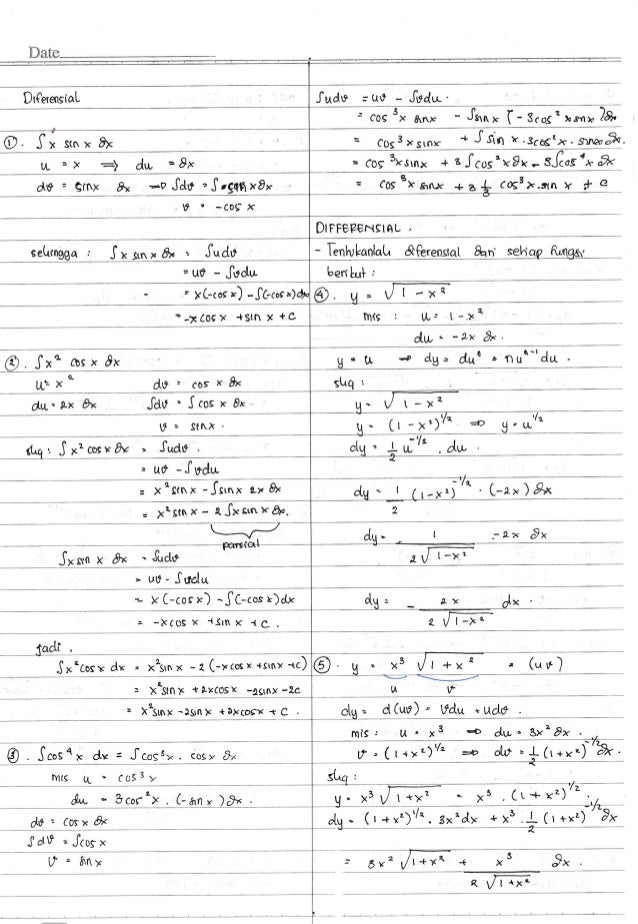 Date
Diferensial
①. ∫x sin x dx
u = x ⇒ du = dx
dv = sinx dx → ∫dv = ∫sin x dx
v = -cos x
sehingga : ∫x sin x dx = ∫udv
= uv - ∫vdu
= x(-cos x) - ∫(-cos x)dx
= -x cos x + sin x + C
②. ∫x² cos x dx
u = x² dv = cos x dx
du = 2x dx ∫dv = ∫cos x dx
v = sinx.
shg : ∫x² cos x dx = ∫udv.
= uv - ∫vdu
= x² sin x - ∫sinx 2x dx
= x² sin x - 2 ∫x sin x dx.
parsial
∫x sin x dx = ∫udv
= uv - ∫vdu
= x(-cos x) - ∫(-cos x)dx
= -x cos x + sin x + C.
jadi,
∫x² cos x dx = x² sin x - 2 (-x cos x + sin x + C)
= x² sin x + 2x cos x - 2 sin x - 2c
= x² sin x - 2 sin x + 2x cos x + C.
③. ∫cos⁴ x dx = ∫cos³ x. cos x dx
mis u = cos³ x
du = 3 cos² x. (-sin x) dx.
dv = cos x dx
∫dv = ∫cos x
v = sin x
∫udv = uv - ∫vdu.
= cos³ x sin x - ∫sin x (-3 cos² x sin x) dx
= cos³ x sin x + ∫sin x. 3cos² x. sin x dx.
= cos³ x sin x + 3 ∫cos² x dx - 3 ∫cos⁴ x dx
= cos³ x sin x + 3 1/3 cos³ x. sin x + c
DIFFERENSIAL.
- Tentukanlah diferensial dari setiap fungsi
berikut :
④. y = √1 - x²
mis : u = 1 - x²
du = -2x dx.
y = u → dy = duⁿ = nuⁿ⁻¹ du.
shg :
y = √1 - x²
y = (1 - x²)^1/2 ⇒ y = u^1/2
dy = 1/2 u^-1/2. du.
dy = 1/2 (1-x²)^-1/2. (-2x) dx
dy = 1/2√1-x² . -2x dx
dy = - 2x/2√1-x² dx.
⑤. y = x³ √1 + x² = (uv)
u v
dy = d(uv) = vdu + udv.
mis : u = x³ ⇒ du = 3x² dx.
v = (1+x²)^1/2 ⇒ dv = 1/2 (1+x²)^-1/2 dx.
shg :
y = x³ √1+x² = x³. (1+x²)^1/2.
dy = (1+x²)^1/2. 3x² dx + x³. 1/2 (1+x²)^-1/2 dx
= 3x² √1+x² + x³/2√1+x² dx.